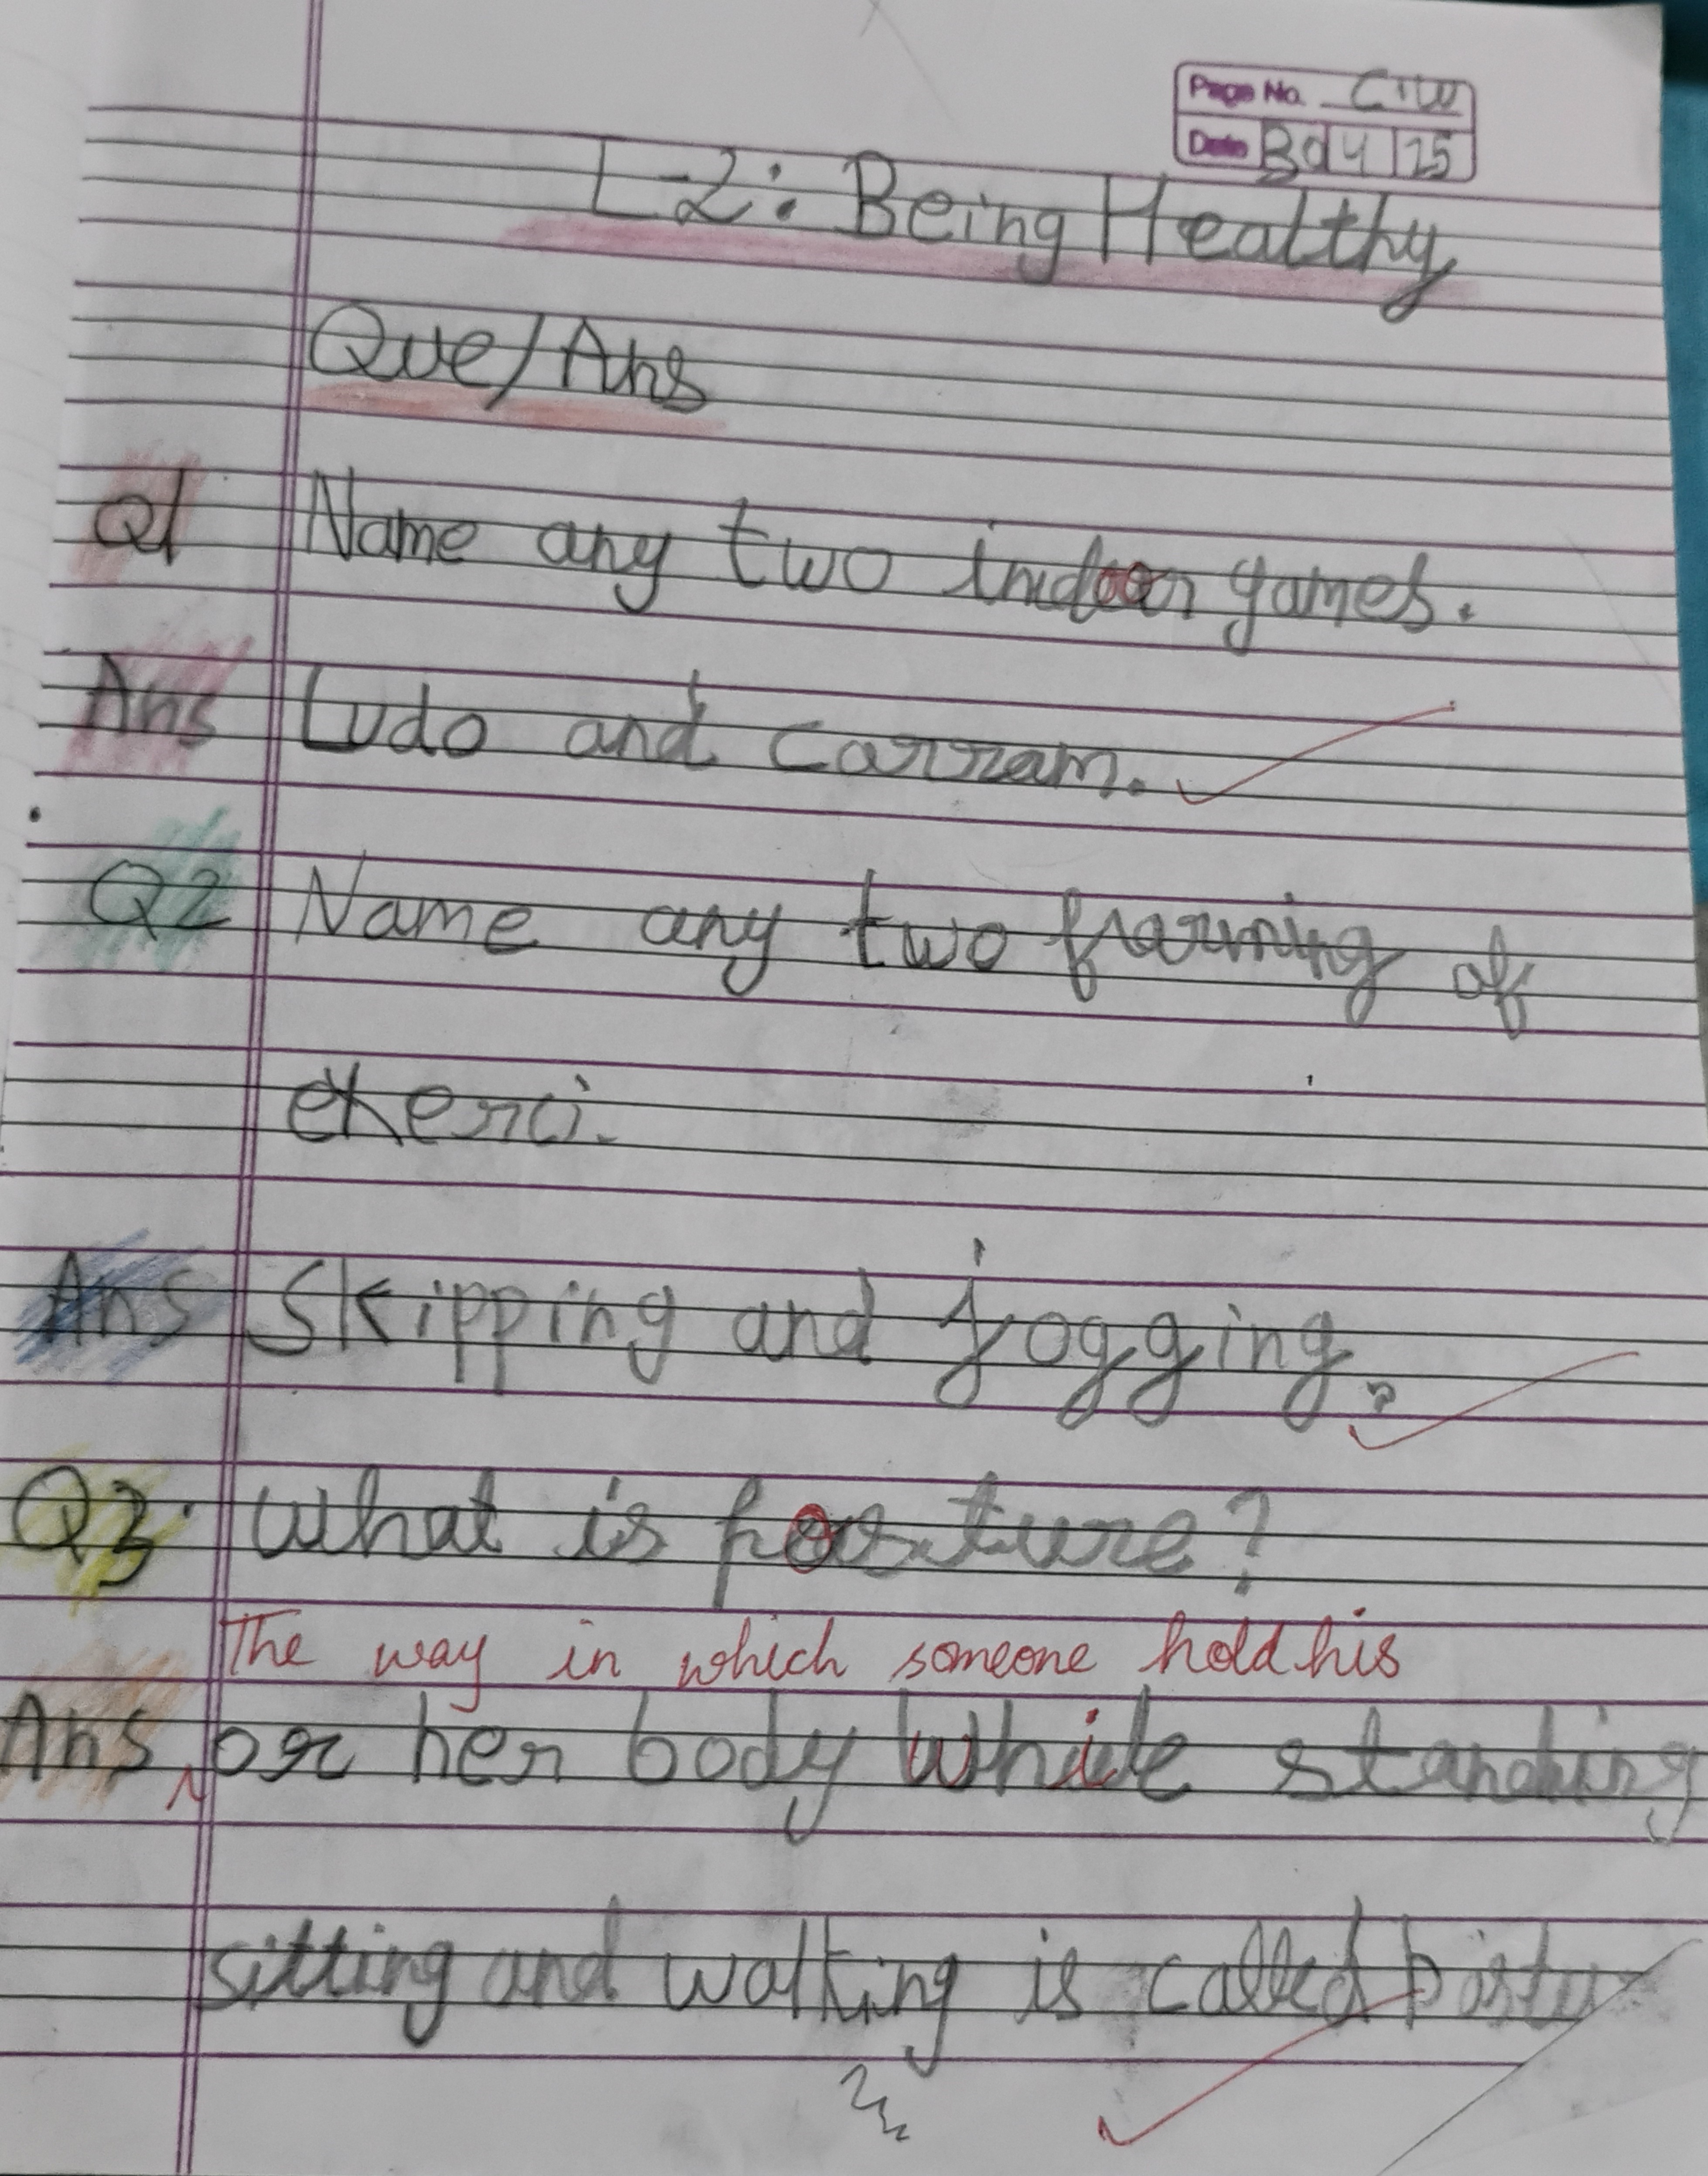 Page No. C.W
Date 30 4 25
L-2: Being Healthy
Que/Ans
Q1 Name any two indoor games.
Ans Ludo and carram.
Q2 Name any two of
exerci.
Ans Skipping and jogging.
Q3. What is posture?
The way in which someone hold his
Ans or her body while standing
sitting and walking is called